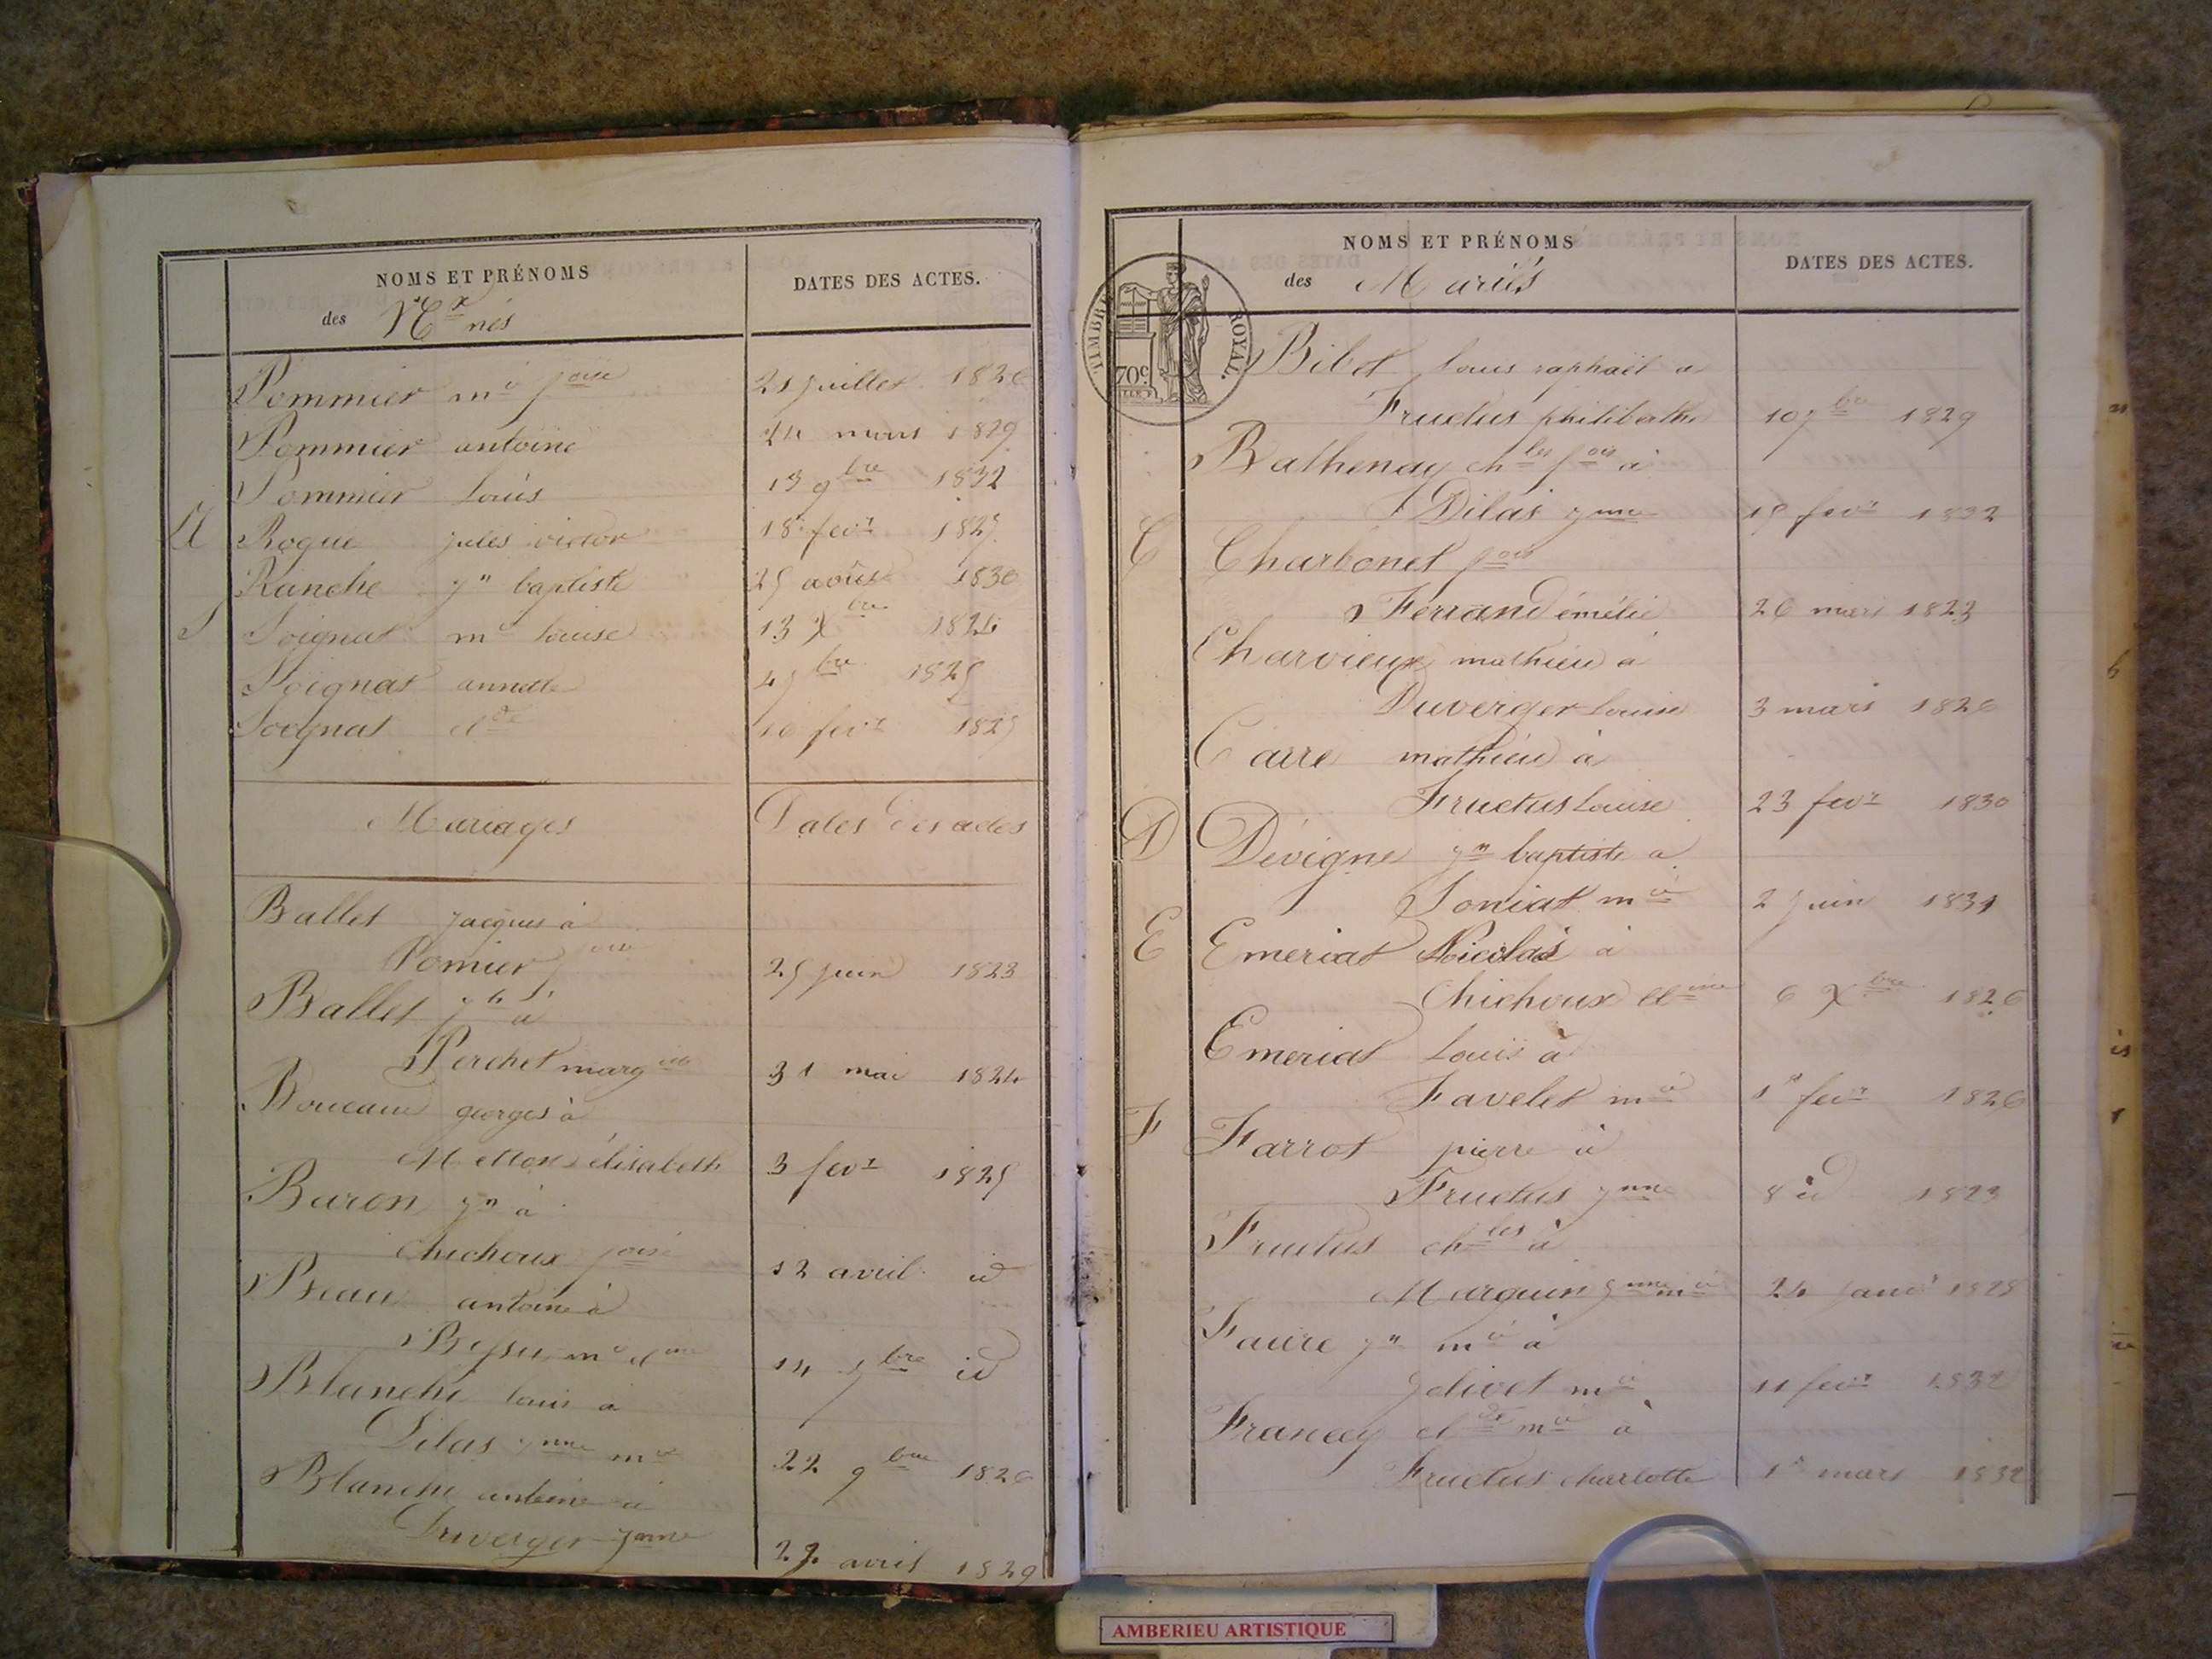 NOMS ET PRÉNOMS
des nés
DATES DES ACTES.
Pommier mie fçoise 21 juillet 1826
Pommier antoine 24 mars 1829
Pommier Louis 13 9bre 1832
R Roque jules victor 18 fevr
Ranche jn baptiste 25 août 1830
S Soignat mie louise 13 Xbre 1824
Soignat annette 1825
Soignat clde 10 fevr
Mariages Dates des actes
Ballet jacques à
Pomier fçoise 25 juin 1823
Ballet
Perchet margite 31 mai 1824
Boucaud georges à
élisabeth 3 fevr 1825
Baron jn à
Chichoux fçoise 12 avril id
antoine à
14 7bre id
Blanche louis à
Dilas jnne mie 22 9bre 1826
Blanche antoine à
Duverger jnne 27 avril 1829
NOMS ET PRÉNOMS
des Mariés
DATES DES ACTES.
TIMBRE ROYAL.
70c
Bibet louis raphaël à
Fructus philiberthe 10 7bre 1829
Bathenay chles fçois à
Dilas jnne 15 fevr 1832
C Charbonet fçois
Ferrand émélie 26 mars 1823
Charvieux mathieu à
Duverger louise 3 mars 1826
Carre mathieu à
Fructus louise 23 fevr 1830
D Dévigne jn baptiste à
Soniat mie 2 juin 1831
E Emeriat Nicolas à
Chichoux clme 6 Xbre 1826
Emeriat Louis à
Favelet mie 1r fevr 1826
F Farrot pierre à
Fructus jnne 8 id 1823
Fructus chles à
Marquin jnne mie 24 janvr 1828
Faure jn mie à
mie 11 fevr 1832
Francey clde mie à
Fructus charlotte 1r mars 1832
AMBERIEU ARTISTIQUE